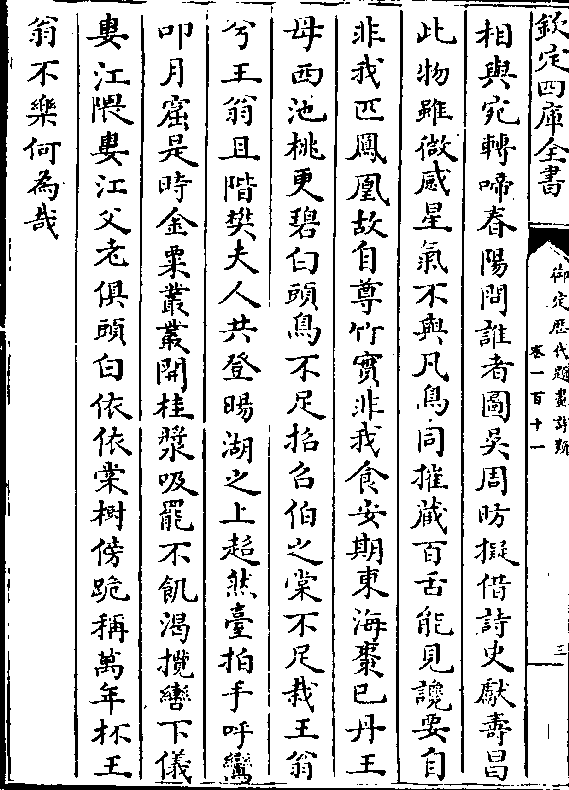 欽定四庫全書
御定歷代題畫詩類
卷一百十一
三
相與宛轉啼春陽問誰者圖吳周昉擬借詩史獻壽昌
此物雖微感星氣不與凡鳥同摧藏百舌能見讒要自
非我匹鳳凰故自尊竹實非我食安期東海棗已丹王
母西池桃更碧白頭鳥不足招召伯之棠不足栽王翁
兮王翁且階樊夫人共登暘湖之上超然臺拍手呼鸞
叩月窟是時金粟叢叢開桂漿吸罷不飢渴攬轡下儀
婁江隈婁江父老俱頭白依依棠樹傍跪稱萬年杯王
翁不樂何為哉